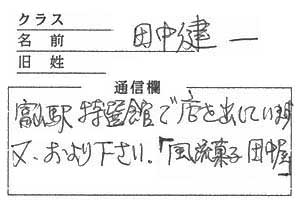 クラス
名前 田中建一
旧姓
通信欄
富山駅特選館で店を出しています
又、およリ下さい。「風流菓子 田中屋」